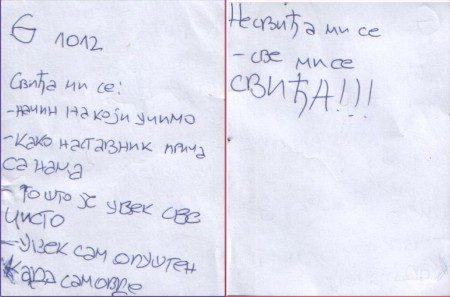 Є 1012
Свиђа ми се:
-начин на који учимо
-Како наставник прича
са нама
-То што је увек све
чисто
-увек сам опуштен
када сам овде
Не свиђа ми се
-све ми се
СВИЂА!!!